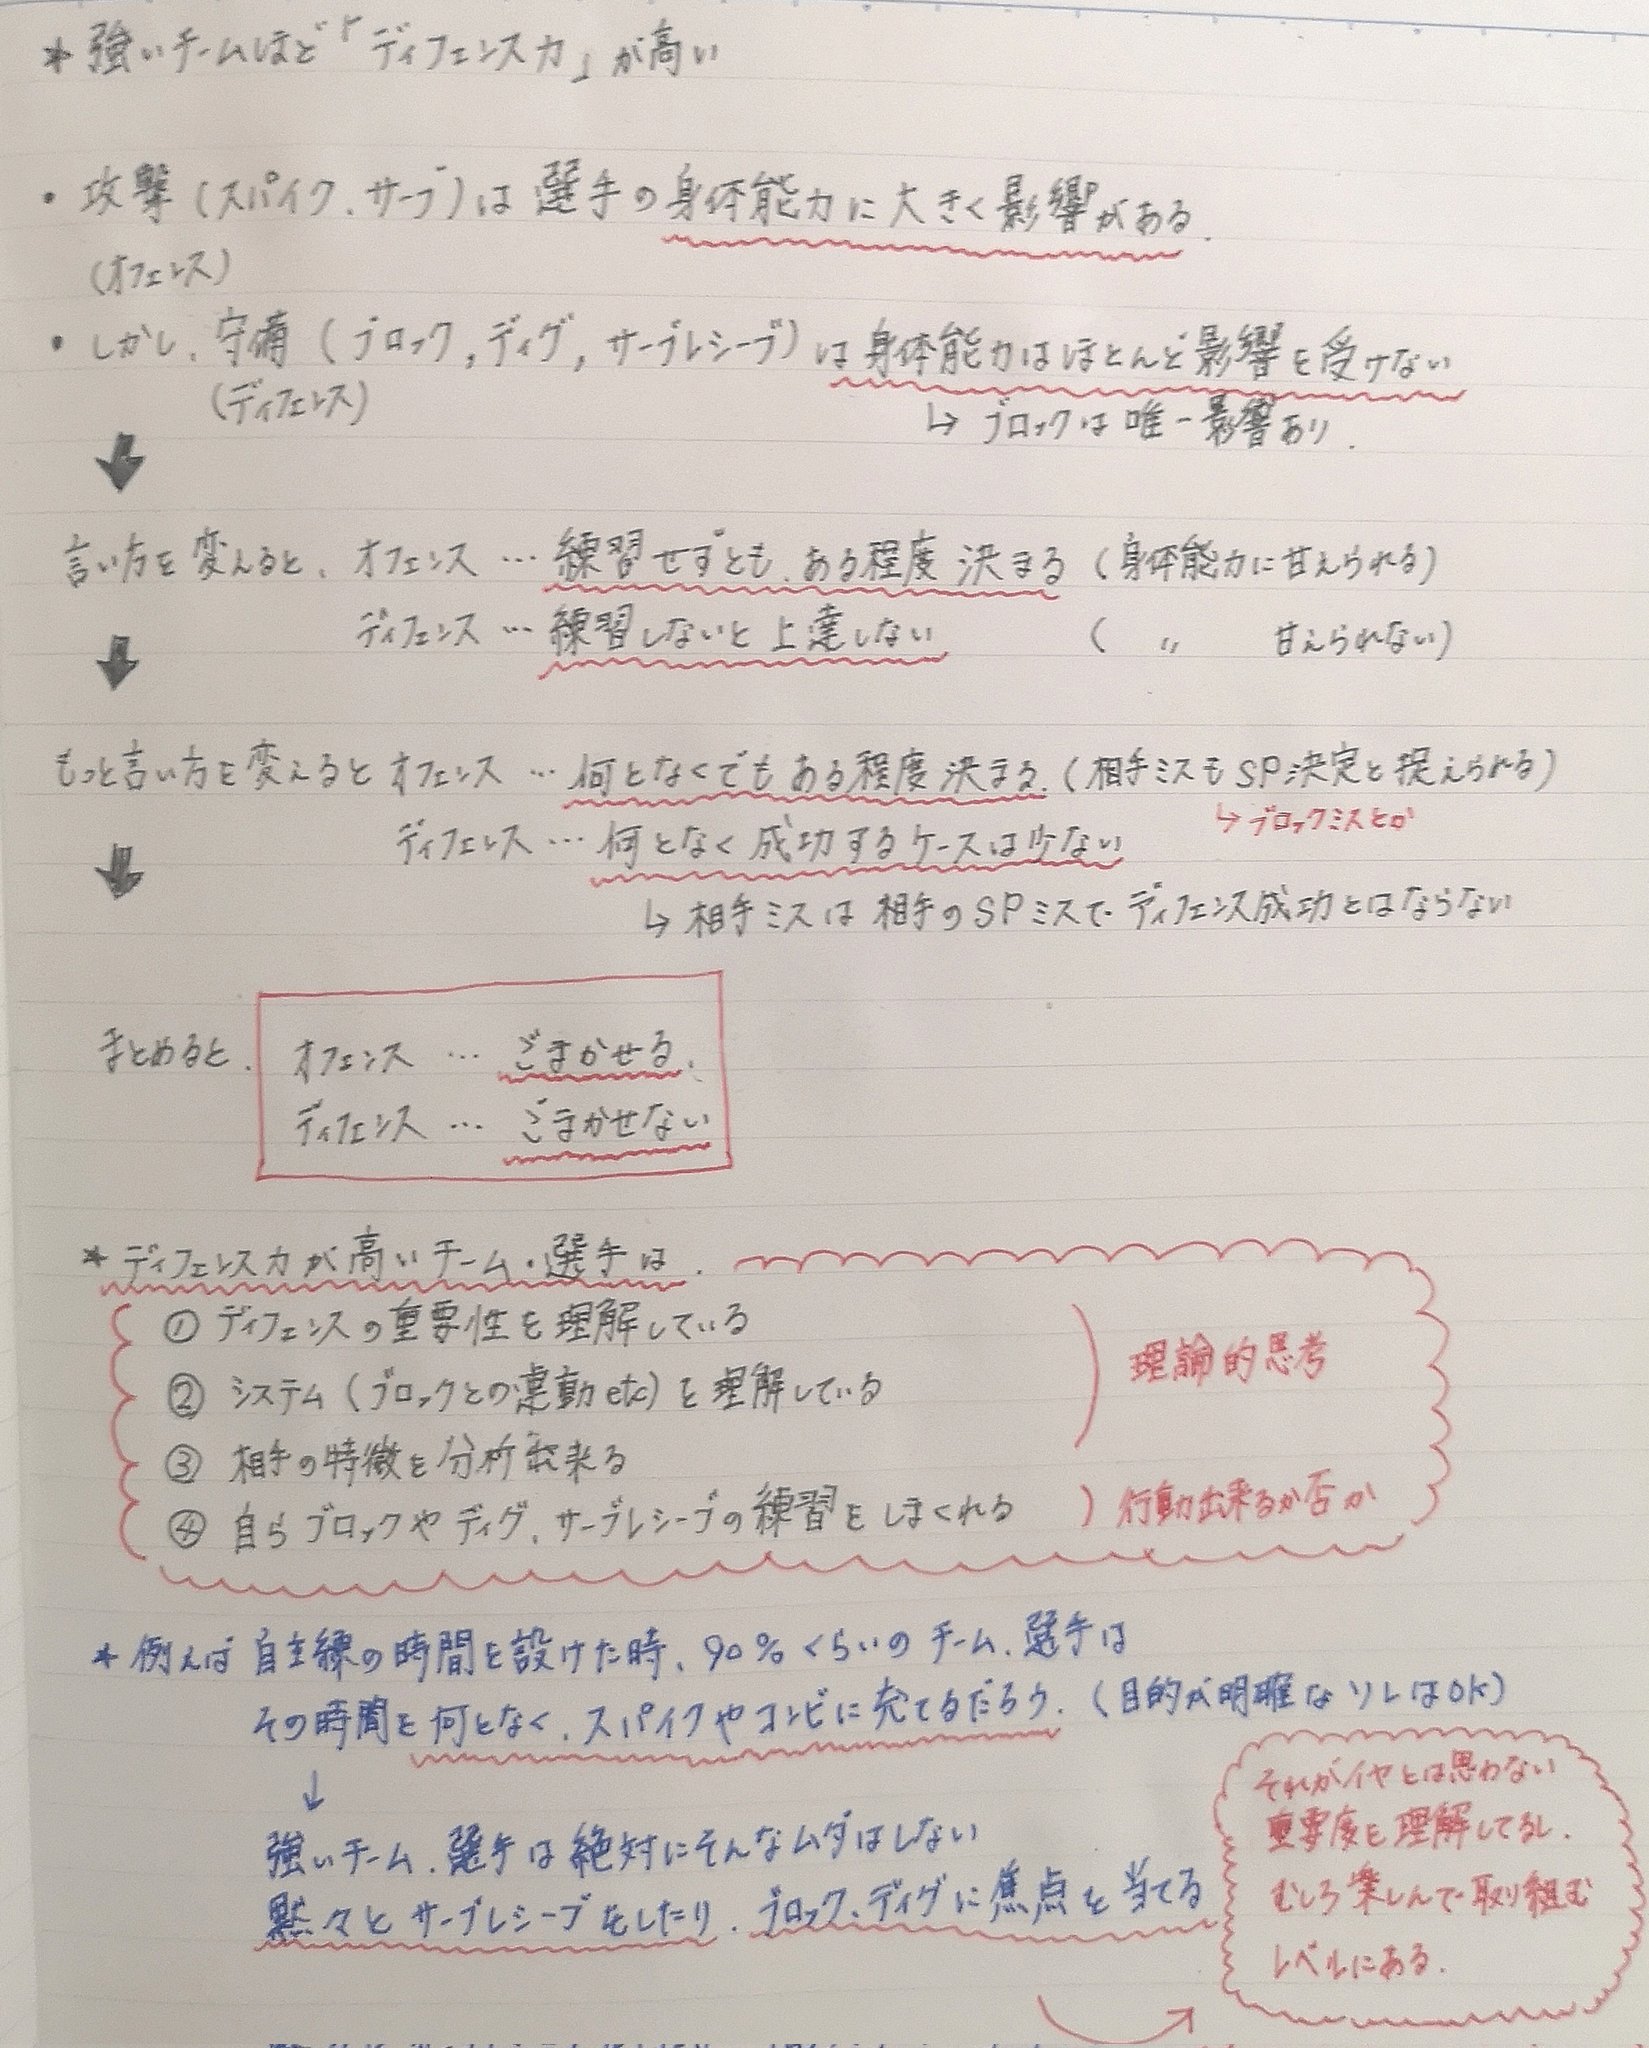 * 強いチームほど「ディフェンス力」が高い
・攻撃(スパイク、サーブ)は選手の身体能力に大きく影響がある.
(オフェンス)
・しかし、守備(ブロック,ディグ,サーブレシーブ)は身体能力はほとんど影響を受けない
(ディフェンス)
↳ ブロックは唯一影響あり.
言い方を変えると、オフェンス … 練習せずとも、ある程度決まる(身体能力に甘えられる)
ディフェンス … 練習しないと上達しない ( 〃 甘えられない)
もっと言い方を変えるとオフェンス … 何となくでもある程度決まる.(相手ミスもSP決定と捉えられる)
↳ブロックミスとか
ディフェンス … 何となく成功するケースは少ない
↳ 相手ミスは相手のSPミスでディフェンス成功とはならない
まとめると、
オフェンス … ごまかせる、
ディフェンス … ごまかせない
* ディフェンス力が高いチーム・選手は、
① ディフェンスの重要性を理解している
② システム(ブロックとの連動etc)を理解している
理論的思考
③ 相手の特徴を分析出来る
④ 自らブロックやディグ、サーブレシーブの練習をしまくれる
行動出来るか否か
* 例えば自主練の時間を設けた時、90%くらいのチーム、選手は
その時間を何となく、スパイクやコンビに充てるだろう.(目的が明確なソレはOK)
↓
強いチーム、選手は絶対にそんなムダはしない
黙々とサーブレシーブをしたり、ブロック、ディグに焦点を当てる
それがイヤとは思わない
重要度を理解してるし、
むしろ楽しんで取り組む
レベルにある.